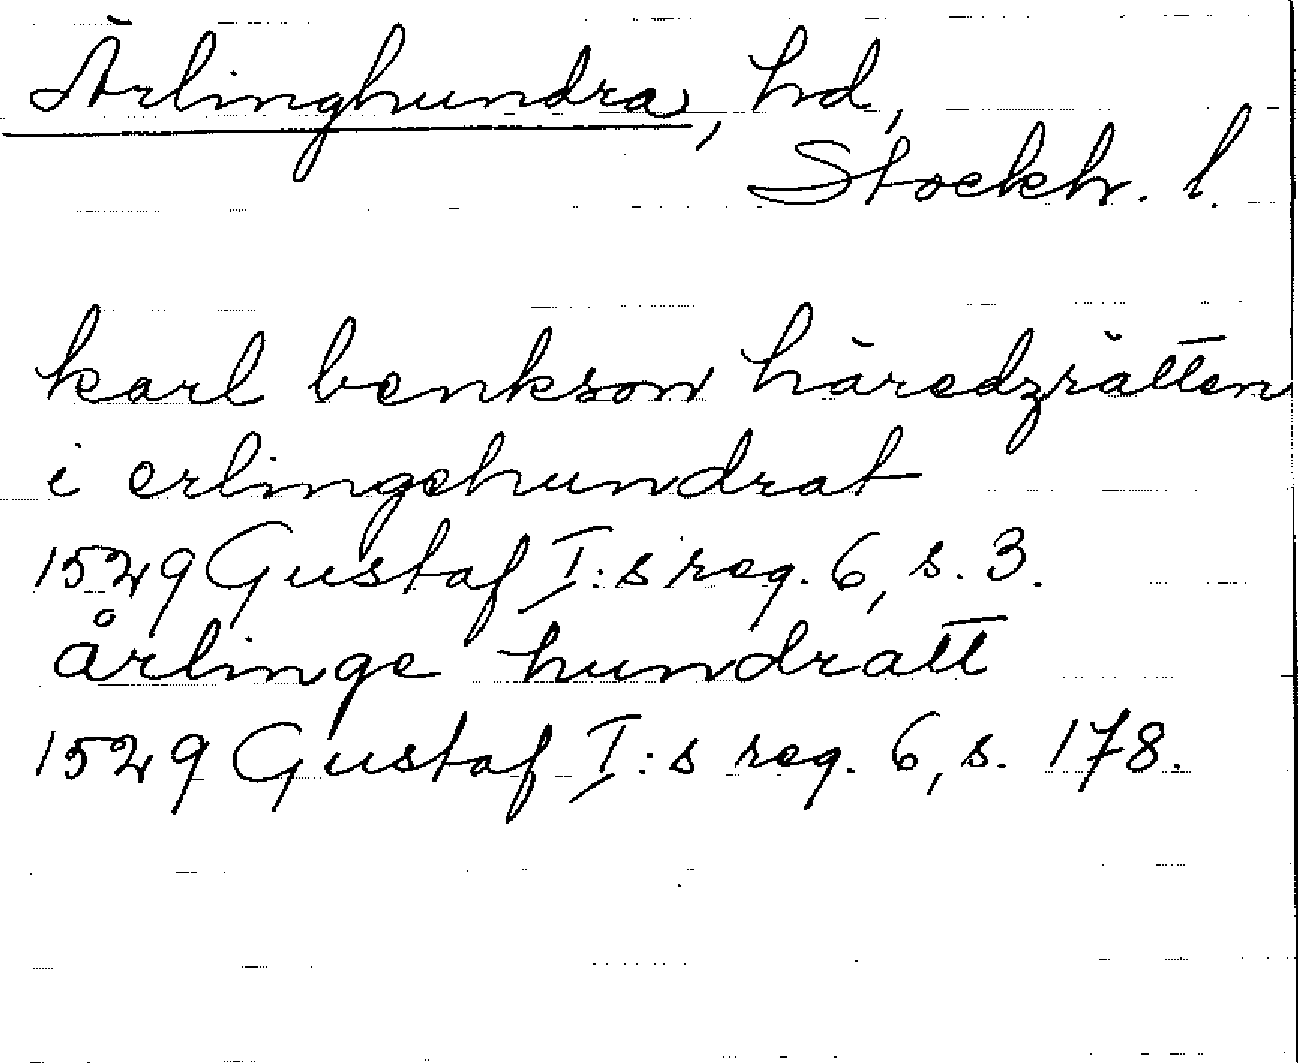 Ärlinghundra, hd,
Stockh. l.
karl benkson häredzrätten
i erlingehundrat
1529 Gustaf I:s reg. 6, s. 3.
årlinge hundratt
1529 Gustaf I:s reg. 6, s. 178.